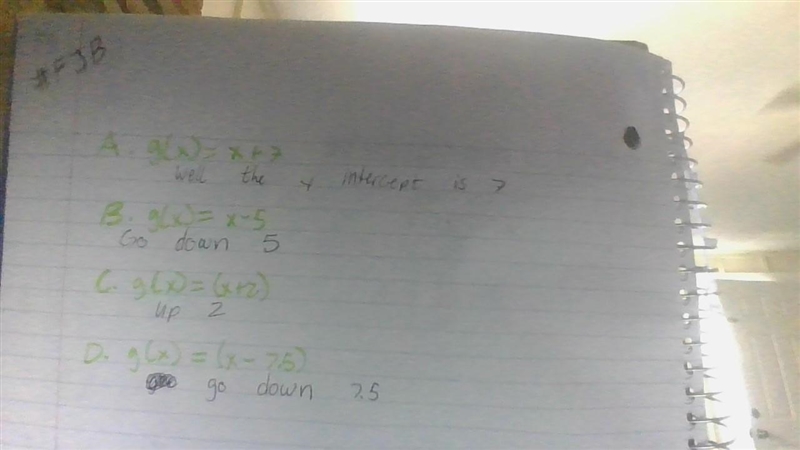 #FJB
A. g(x) = x+7
Well the y intercept is 7
B. g(x) = x-5
Go down 5
C. g(x) = (x+2)
up 2
D. g(x) = (x-7.5)
go down 7.5